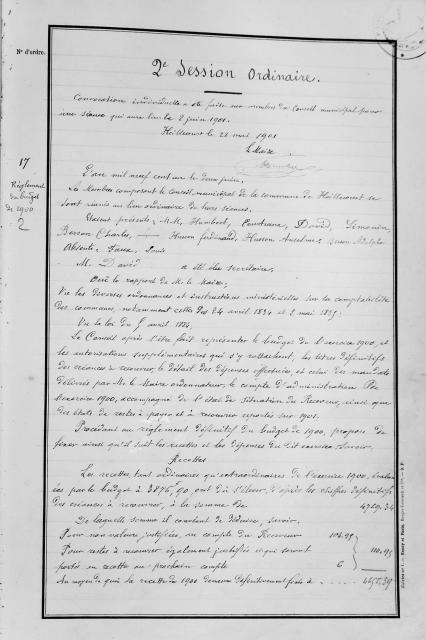 N° d'ordre.
2e Session Ordinaire.
Convocation individuelle a été faite aux membres du Conseil municipal pour
une séance qui aura lieu le 2 juin 1901.
Heillecourt le 28 mai 1901
Le Maire
17
Règlement
du budget
de 1900
L'an mil neuf cent un le deux juin,
Les Membres composant le conseil municipal de la commune de Heillecourt se
sont réunis au lieu ordinaire de leurs séances.
Étaient présents, M.M. Humbert, David,
Charles, Husson Ferdinand, Husson Anselme, Adolphe
Absents: Louis
M. David a été élu secrétaire,
Ouï le rapport de M. le Maire;
Vu les diverses ordonnances et instructions ministérielles sur la comptabilité
des communes, notamment celles des 24 avril 1834 et 2 mai 1835;
Vu la loi du 5 avril 1884;
Le Conseil après s'être fait représenter le budget de l'exercice 1900, et
les autorisations supplémentaires qui s'y rattachent, les titres définitifs
des créances à recouvrer, le détail des dépenses effectuées, et celui des mandats
délivrés par M. le Maire ordonnateur, le compte d'administration de
l'exercice 1900, accompagné de l'état de situation du Receveur, ainsi que
des états de restes à payer et à recouvrer reportés sur 1901.
Procédant au règlement définitif du budget de 1900, propose de
fixer ainsi qu'il suit les recettes et les dépenses du dit exercice, savoir.
Recettes
Les recettes, tant ordinaires qu'extraordinaires de l'exercice 1900, évalu-
ées par le budget à 3876f,90, ont dû s'élever, d'après les chiffres définitifs
des créances à recouvrer, à la somme de 4759.34
De laquelle somme il convient de déduire, savoir.
Pour non valeurs, justifiées, au compte du Receveur
Pour restes à recouvrer également justifiés et qui seront
portés en recette au prochain compte 6
Au moyen de quoi la recette de 1900 demeure définitivement fixée à